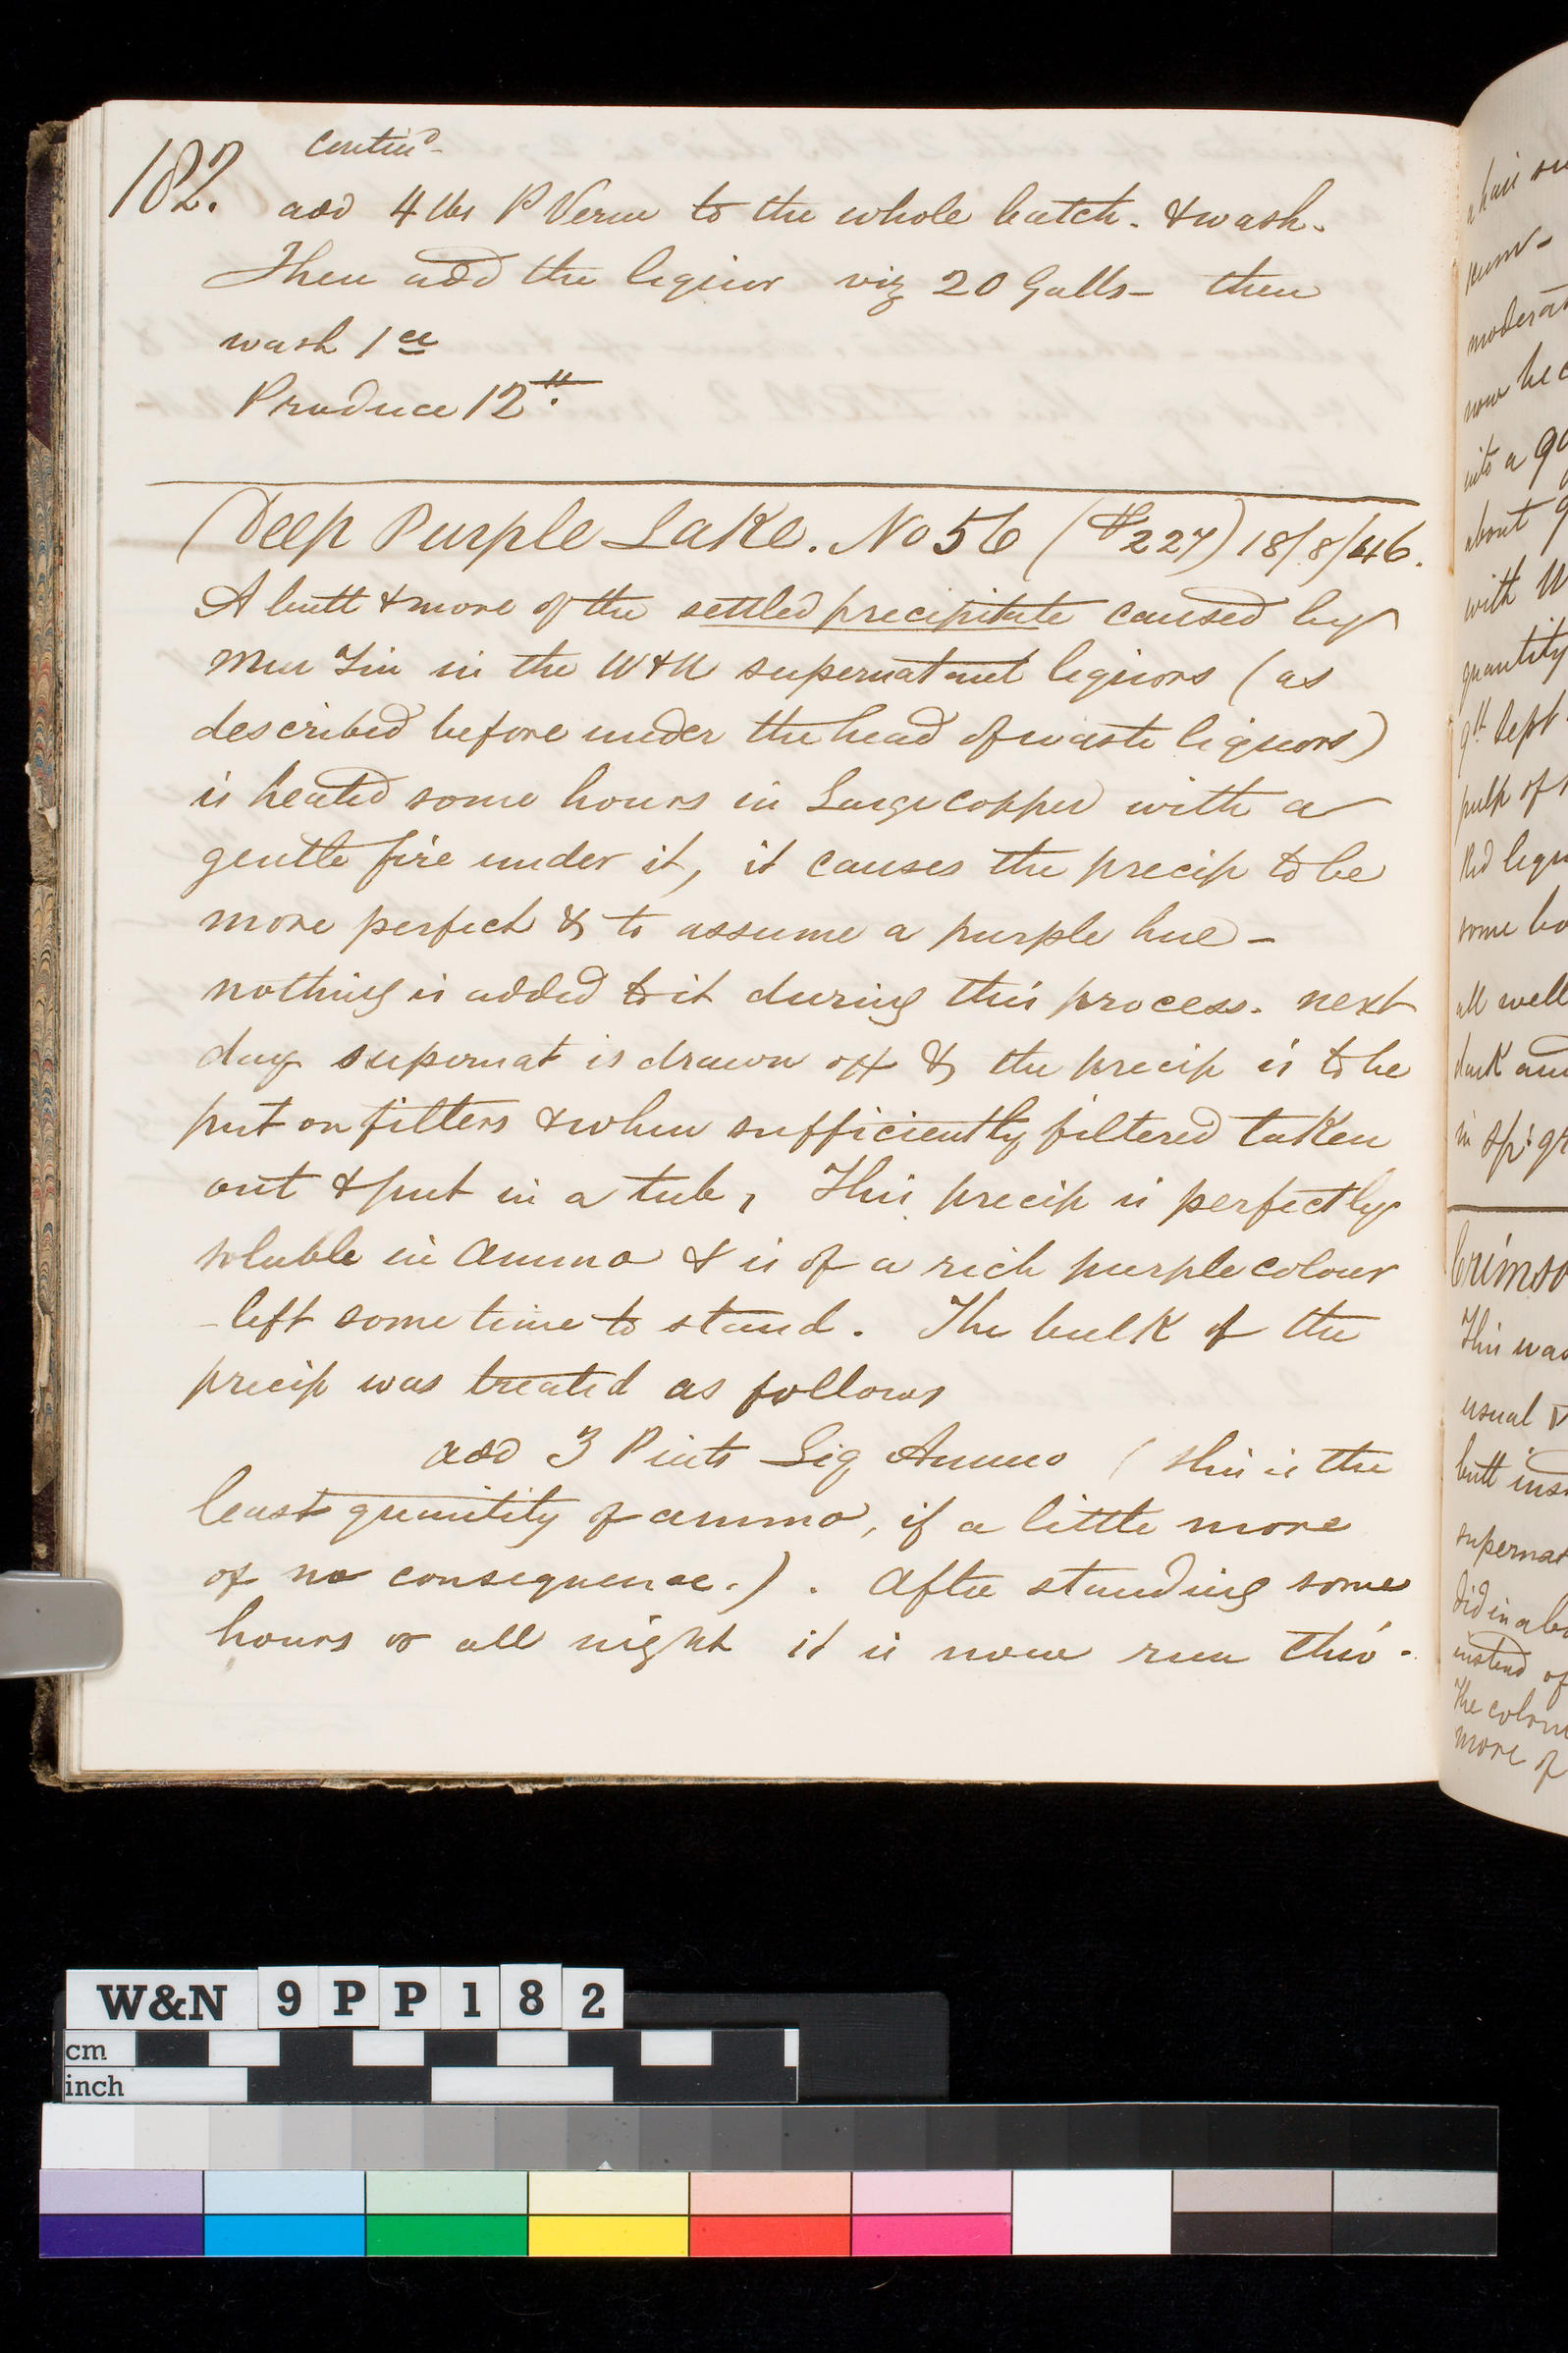 182. Contin^d
add 4 lbs P Verm to the whole batch. & wash.
Then add the liquor viz 20 Galls – then
wash 1^ce
Produce 12 ℔.
Deep Purple Lake. No 56 (227) 18/8/46.
A butt & more of the settled precipitate caused by
Mur Tin in the W&N supernatant liquors (as
described before under the head of waste liquors)
is heated some hours in Large copper with a
gentle fire under it, it causes the precip to be
more perfect & to assume a purple hue –
nothing is added to it during this process. next
day supernat is drawn off & the precip is to be
put on filters & when sufficiently filtered taken
out & put in a tub, This precip is perfectly
soluble in Ammo & is of a rich purple colour
– left some time to stand. The bulk of the
precip was treated as follows
add 3 Pints Liq Ammo (this is the
least quantity of ammo, if a little more
of no consequence.). After standing some
hours or all night it is now run thro'.
a hair
moderat
now bec
into a
about
with
quantity
9th Sept
pulp of
Red liqu
some bo
all well
dark and
in Sp. gr
Crimso
This was
usual
butt ins
supernat
did in a
instead of
The colour
more of
W&N 9PP182
cm
inch